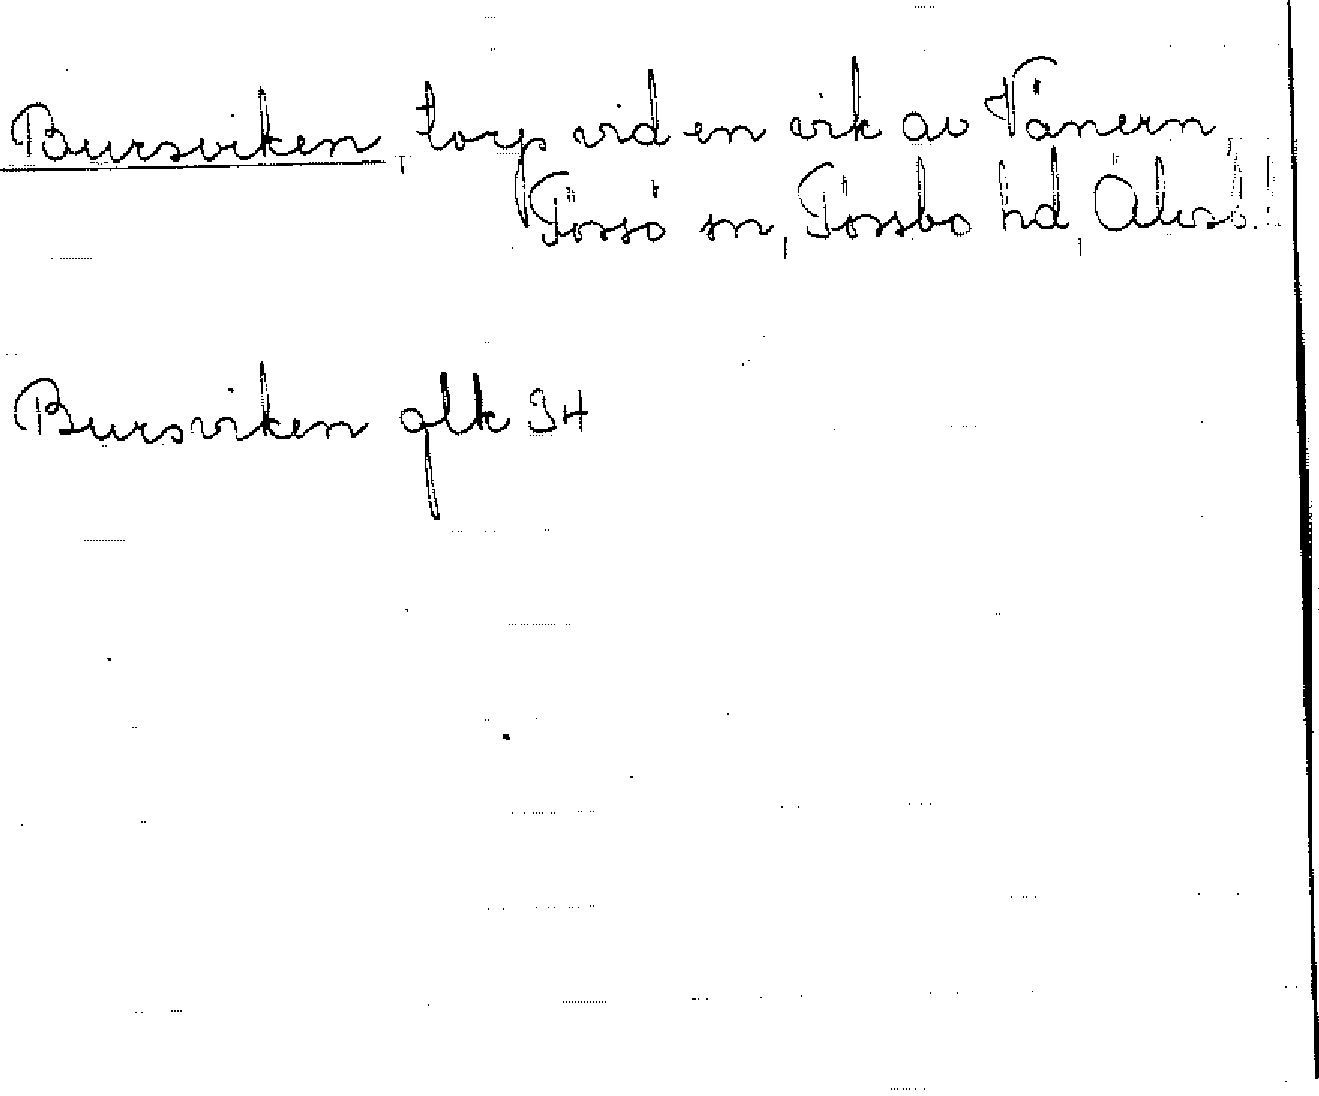 Bursviken, torp vid en vik av Vänern,
Tössö sn, Tössbo hd, Älvsb. l.
Bursviken glk 34